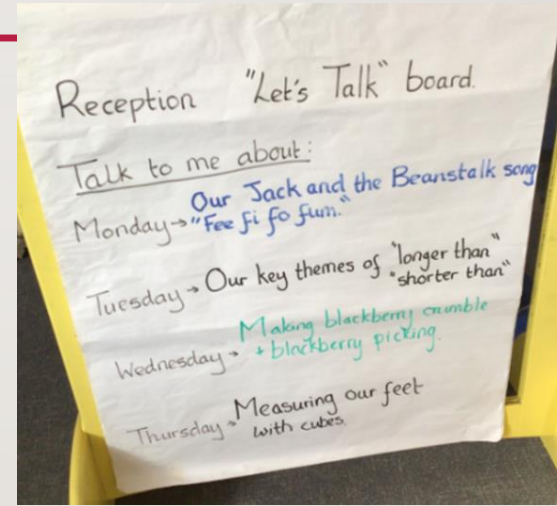 Reception "Let's Talk" board.
Talk to me about:
Monday → Our Jack and the Beanstalk song
"Fee fi fo fum."
Tuesday → Our key themes of "longer than"
"shorter than"
Wednesday → Making blackberry crumble
+ blackberry picking.
Thursday → Measuring our feet
with cubes.